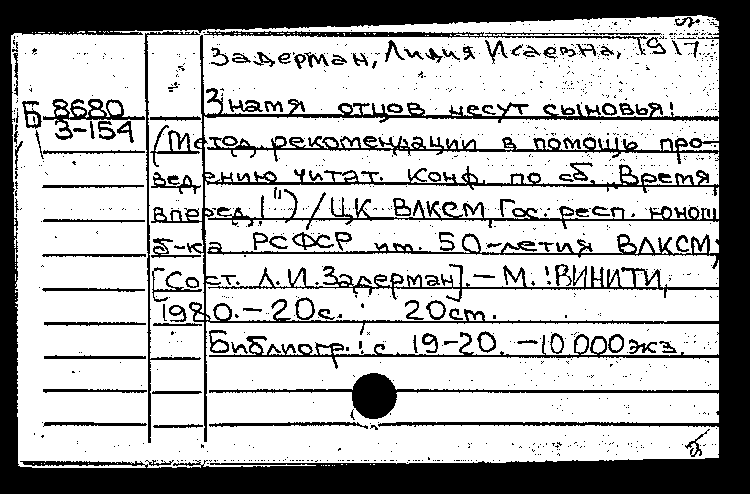 Задерман, Лидия Исаевна, 1917
Б 8680
3-154
Знамя отцов несут сыновья!
(Метод. рекомендации в помощь про-
ведению читат. конф. по сб. „Время,
вперед!") / ЦК ВЛКСМ, Гос. респ. юнош.
б-ка РСФСР им. 50-летия ВЛКСМ;
[Сост. Л.И. Задерман]. – М.: ВИНИТИ,
1980. – 20с.; 20см.
Библиогр.: с. 19-20. – 10 000 экз.